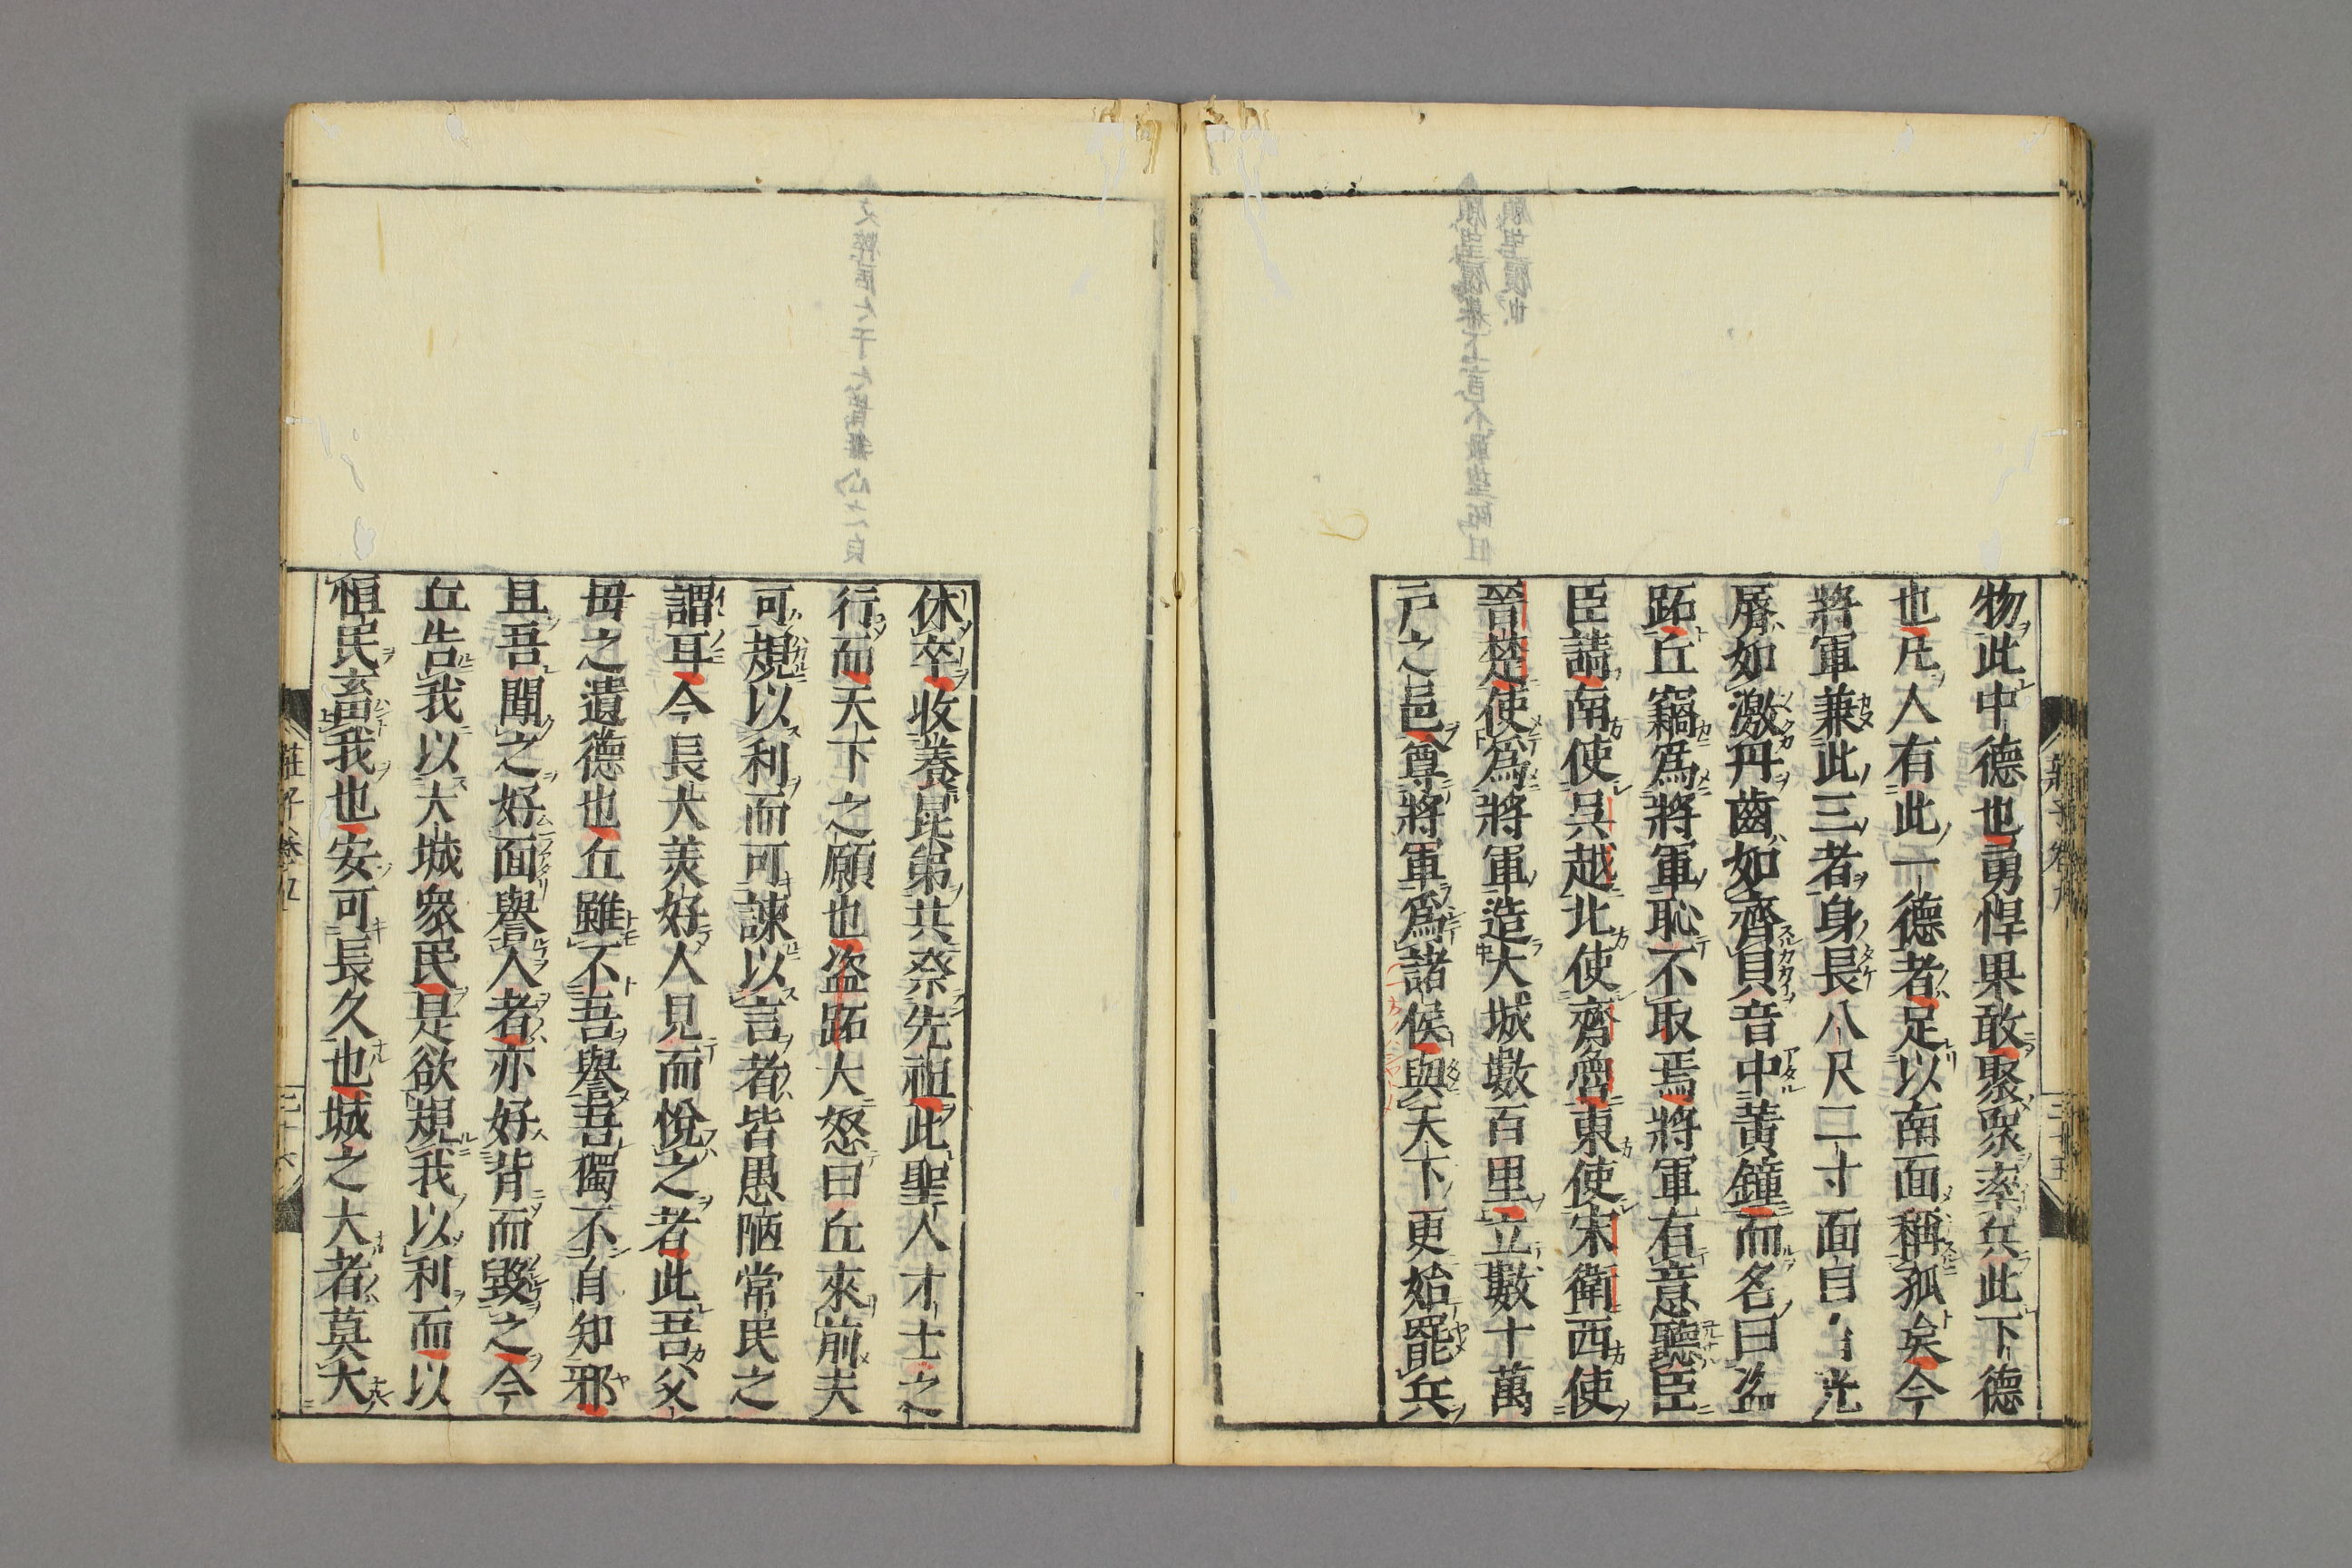 物此中德也勇悍果敢聚衆率兵此下德
也凡人有此一德者足以南面稱孤矣今
將軍兼此三者身長八尺二寸面目有光
脣如激丹齒如齊貝音中黃鐘而名曰盗
跖丘竊爲將軍恥不取焉將軍有意聽臣
臣請南使吳越北使齊魯東使宋衛西使
晉楚使爲將軍造大城數百里立數十萬
戸之邑尊將軍爲諸侯與天下更始罷兵
休卒收養昆弟共祭先祖此聖人才士之
行而天下之願也盗跖大怒曰丘來前夫
可規以利而可諫以言者皆愚陋常民之
謂耳今長大美好人見而悅之者此吾父
母之遺德也丘雖不吾譽吾獨不自知邪
且吾聞之好面譽人者亦好背而毀之今
丘告我以大城衆民是欲規我以利而以
恒民畜我也安可長久也城之大者莫大
莊子卷五